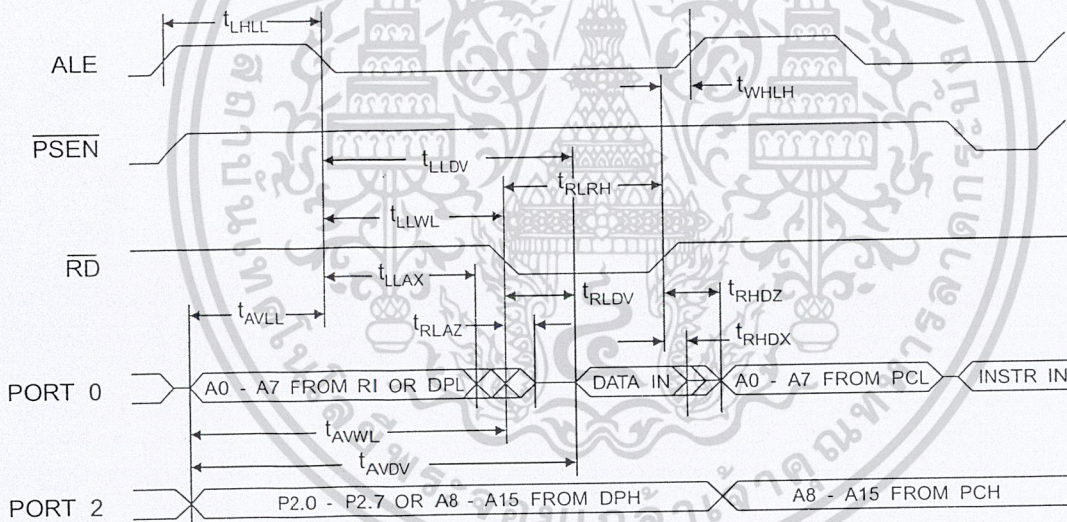 tLHLL
ALE
tWHLH
PSEN
tLLDV
tRLRH
tLLWL
RD
tLLAX
tRLDV
tRHDZ
tAVLL
tRLAZ
tRHDX
PORT 0
A0 - A7 FROM RI OR DPL
DATA IN
A0 - A7 FROM PCL
INSTR IN
tAVWL
tAVDV
PORT 2
P2.0 - P2.7 OR A8 - A15 FROM DPH
A8 - A15 FROM PCH